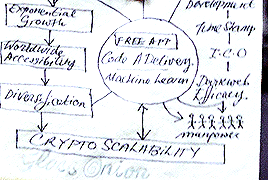 Exponential
Growth
Worldwide
Accessibility
Diversification
FREE APP
Code A Delivery
Machine Learn
Development
Time Stamp
I-C-O
Efficacy
manpower
CRYPTO SCALABILITY